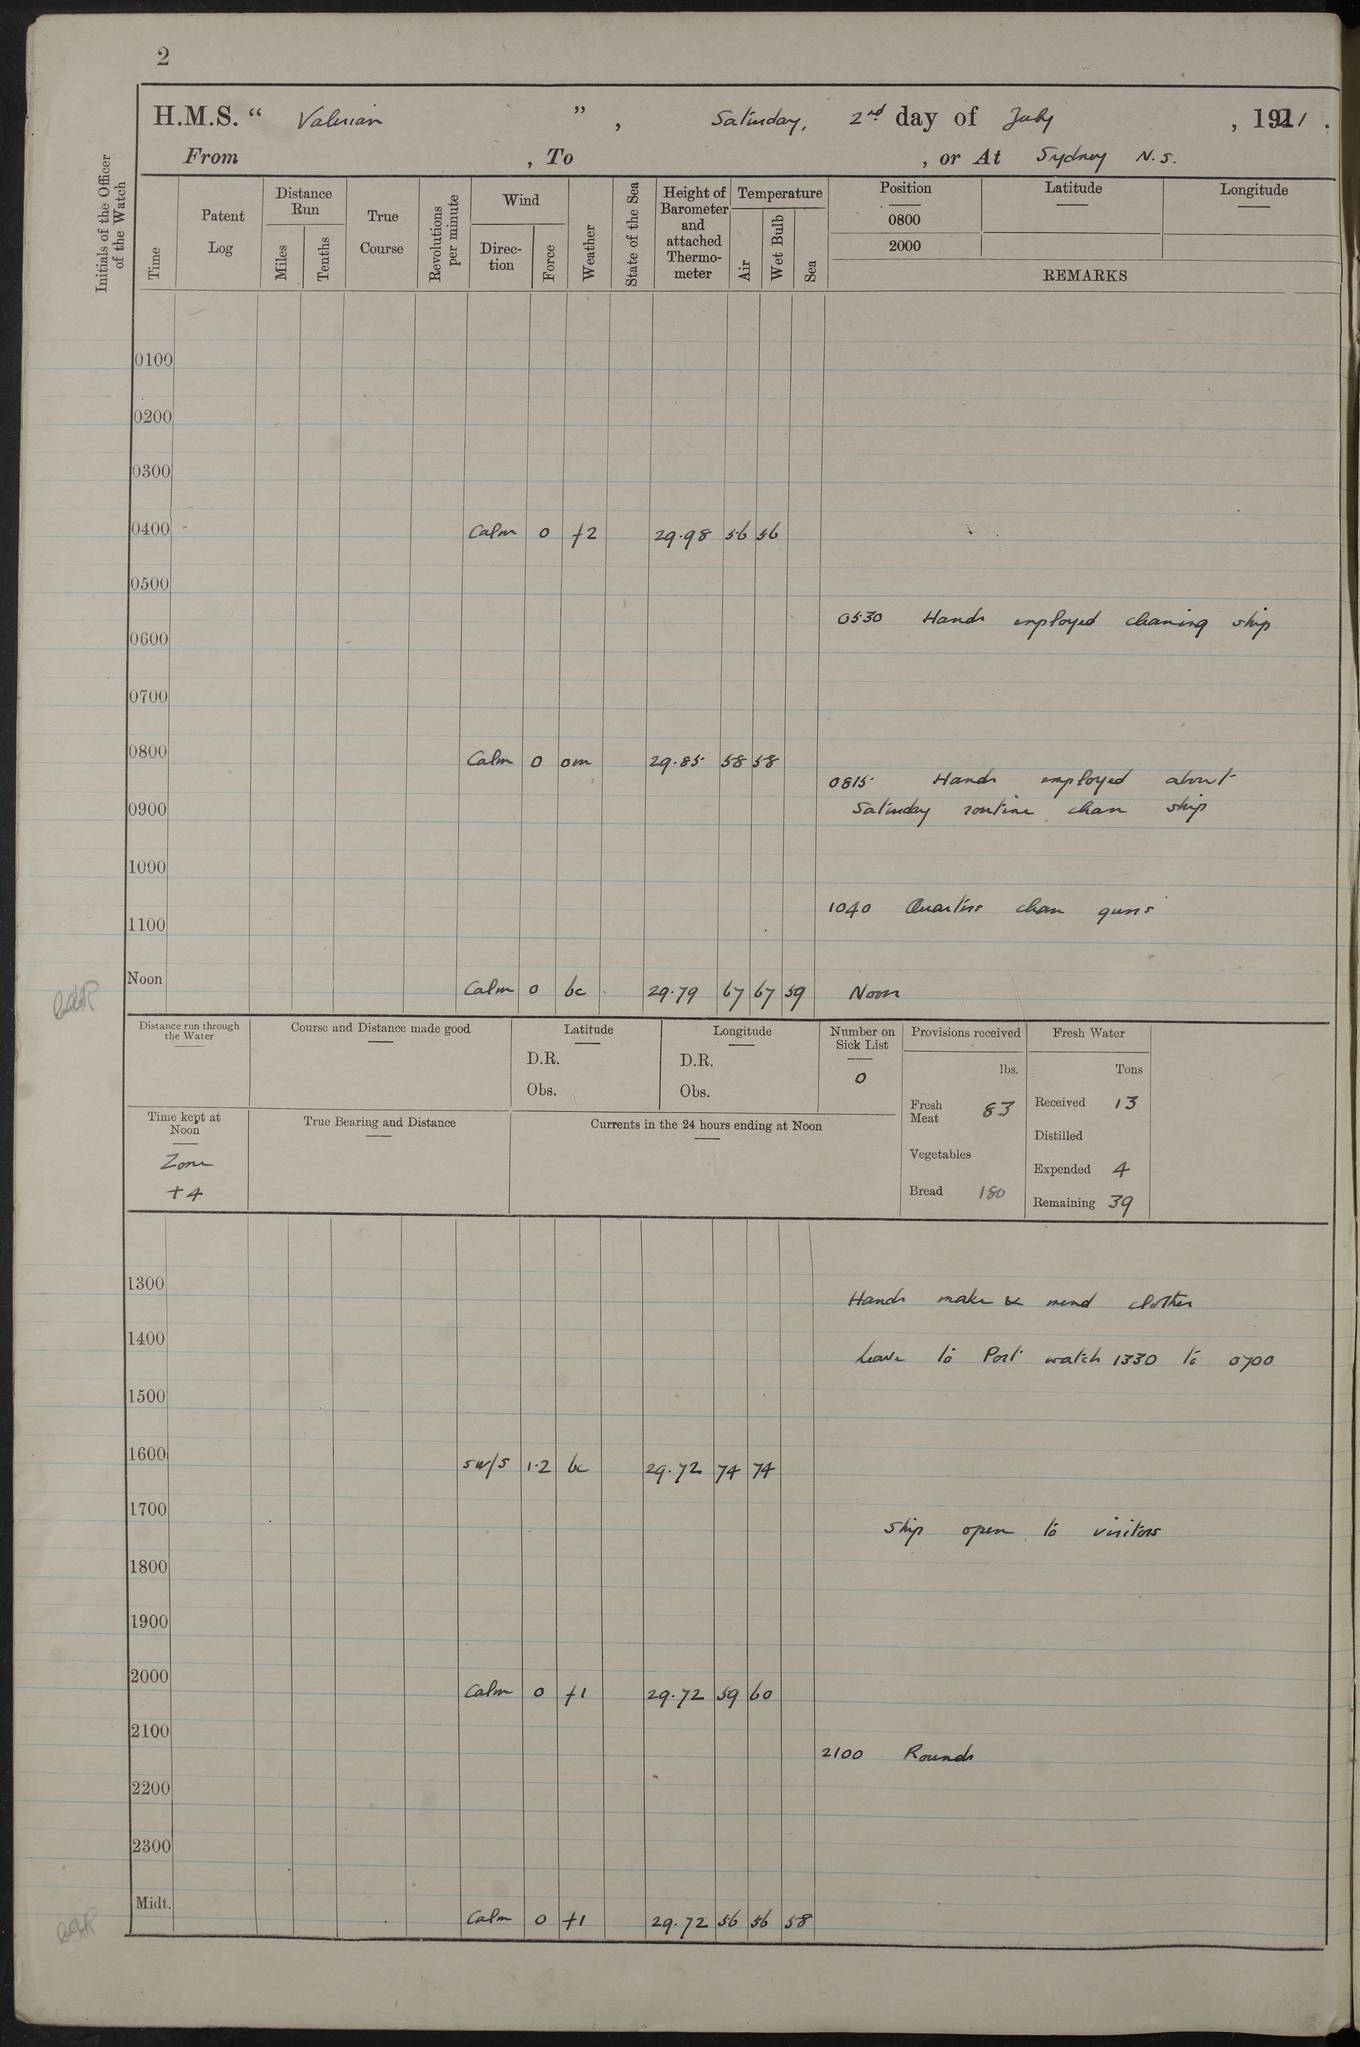 2
H.M.S. “ Valerian ”, Saturday, 2nd day of July, 1921.
From , To , or At Sydney N.S.
Initials of the Officer of the Watch
Time
Patent Log
Distance Run
Miles
Tenths
True Course
Revolutions per minute
Wind
Direc-tion
Force
Weather
State of the Sea
Height of Barometer and attached Thermo-meter
Temperature
Air
Wet Bulb
Sea
Position Latitude Longitude
0800
2000
REMARKS
0100
0200
0300
0400 Calm 0 f2 29.98 56 56
0500
0530 Hands employed cleaning ship
0600
0700
0800 Calm 0 om 29.85 58 58
0815 Hands employed about
0900 Saturday routine clean ship
1000
1040 Quarters clean guns
1100
Noon Calm 0 bc 29.79 67 67 59 Noon
Distance run through the Water
Course and Distance made good
Latitude
D.R.
Obs.
Longitude
D.R.
Obs.
Number on Sick List
0
Provisions received
lbs.
Fresh Meat 83
Vegetables
Bread 180
Fresh Water
Tons
Received 13
Distilled
Expended 4
Remaining 39
Time kept at Noon
Zone
+4
True Bearing and Distance
Currents in the 24 hours ending at Noon
1300
Hands make & mend clothes
1400
Leave to Port watch 1330 to 0700
1500
1600 SW/S 1.2 bc 29.72 74 74
1700
Ship open to visitors
1800
1900
2000 Calm 0 f1 29.72 59 60
2100
2100 Rounds
2200
2300
Midt. Calm 0 f1 29.72 56 56 58